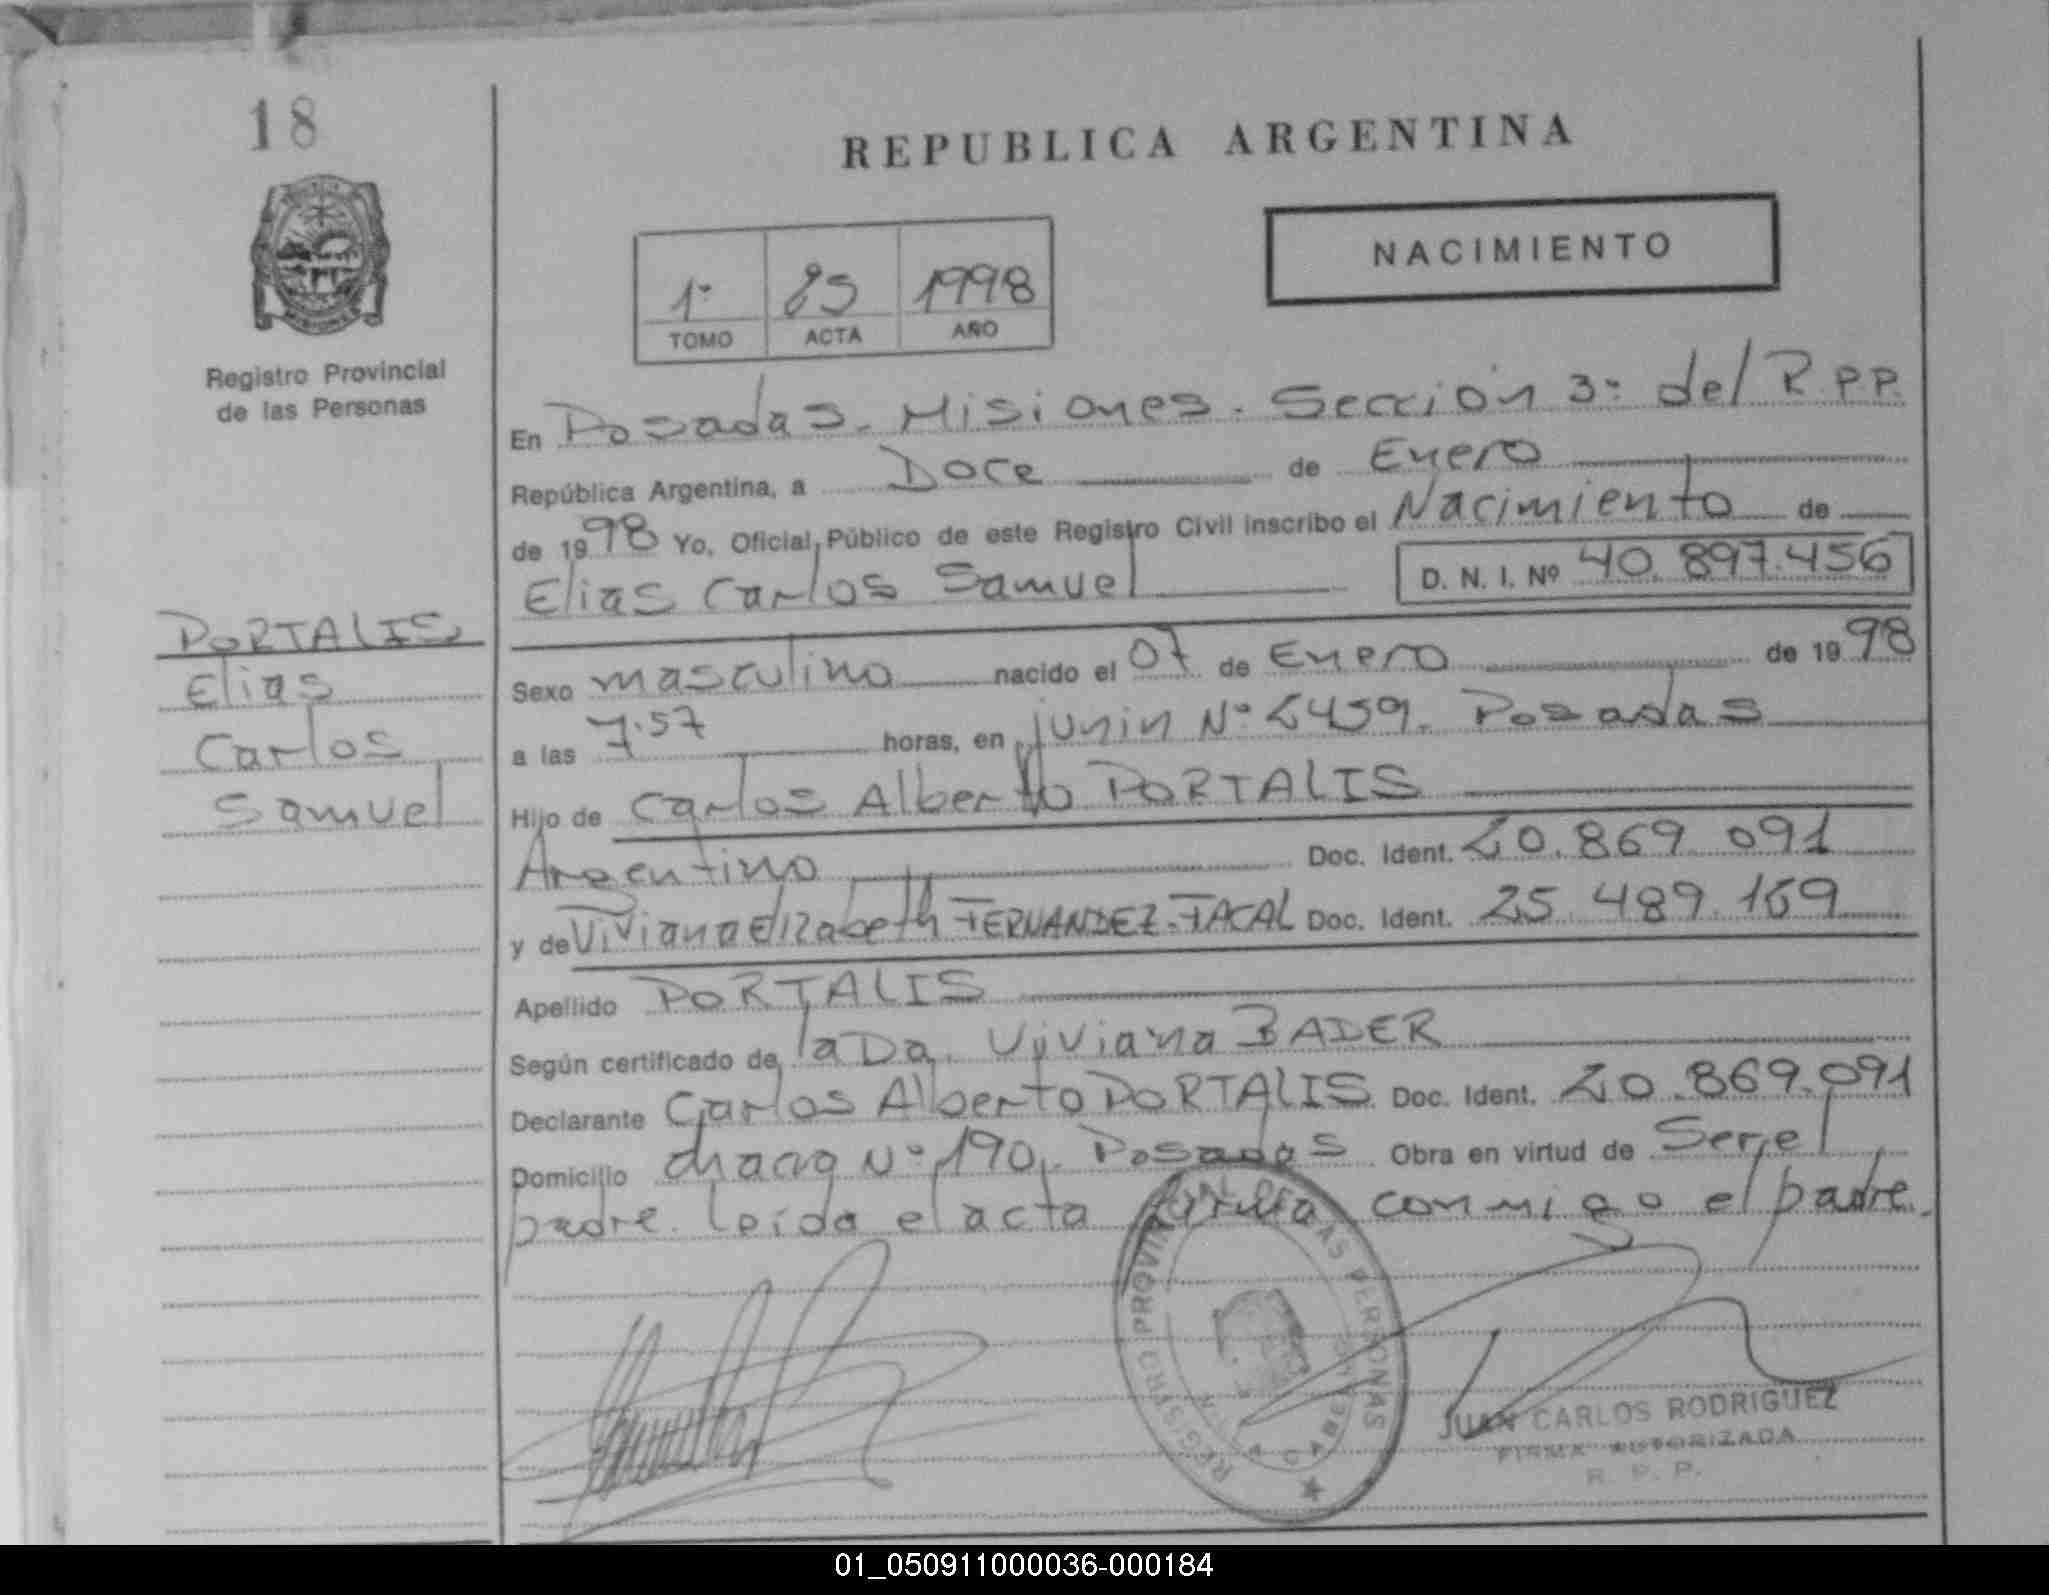 18
REPUBLICA ARGENTINA
NACIMIENTO
1º 85 1998
TOMO ACTA AÑO
Registro Provincial
de las Personas
En Posadas. Misiones. Sección 3º del R.P.P.
República Argentina, a Doce de Enero
de 1998 Yo, Oficial Público de este Registro Civil inscribo el Nacimiento de
Elias Carlos Samuel D. N. I. Nº 40.897.456
PORTALIS
Elias
Carlos
Samuel
Sexo masculino nacido el 07 de Enero de 1998
a las 7.57 horas, en junin Nº 2459. Posadas
Hijo de Carlos Alberto PORTALIS
Argentino Doc. Ident. 20.869.091
y de Viviana Elizabeth FERNANDEZ-TACAL Doc. Ident. 25.489.169
Apellido PORTALIS
Según certificado de la Da. Viviana BADER
Declarante Carlos Alberto PORTALIS Doc. Ident. 20.869.091
Domicilio chacra Nº 190. Posadas Obra en virtud de Ser el
padre. Leída el acta firma conmigo el padre.
REGISTRO PROVINCIAL DE LAS PERSONAS
POSADAS
JUAN CARLOS RODRIGUEZ
FIRMA AUTORIZADA
R. P. P.
01_050911000036-000184